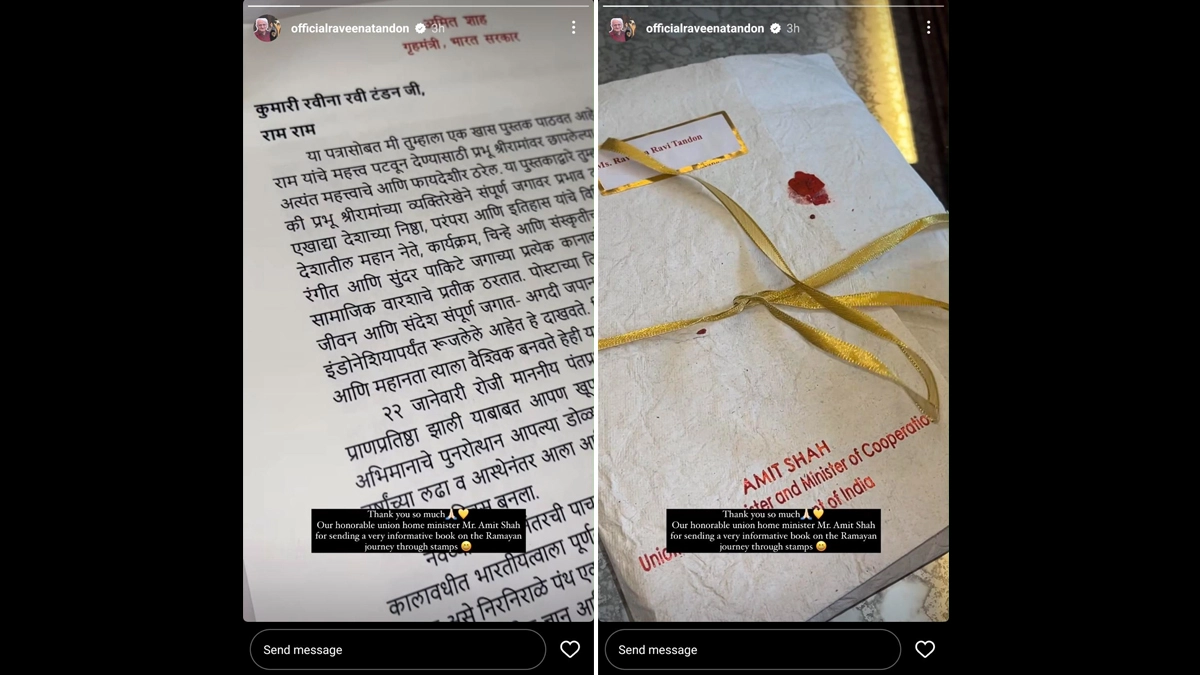 officialraveenatandon 3h
अमित शाह
गृहमंत्री, भारत सरकार
कुमारी रवीना रवी टंडन जी,
राम राम
या पत्रासोबत मी तुम्हाला एक खास पुस्तक पाठवत आहे
राम यांचे महत्त्व पटवून देण्यासाठी प्रभू श्रीरामांवर छापलेल्या
अत्यंत महत्त्वाचे आणि फायदेशीर ठरेल. या पुस्तकाद्वारे
की प्रभू श्रीरामांच्या व्यक्तिरेखेने संपूर्ण जगावर प्रभाव
एखाद्या देशाच्या निष्ठा, परंपरा आणि इतिहास यांचे
देशातील महान नेते, कार्यक्रम, चिन्हे आणि
रंगीत आणि सुंदर पाकिटे जगाच्या प्रत्येक
सामाजिक वारशाचे प्रतीक ठरतात. पोस्टाच्या
जीवन आणि संदेश संपूर्ण जगात- अगदी
इंडोनेशियापर्यंत रूजलेले आहेत हे दाखवते.
आणि महानता त्याला वैश्विक बनवते हेही
२२ जानेवारी रोजी माननीय
प्राणप्रतिष्ठा झाली याबाबत आपण
अभिमानाचे पुनरोत्थान आपल्या
लढा व आस्थेनंतर आला
बनला.
कालावधीत भारतीयत्वाला पूर्ण
असे निरनिराळे पंथ
Thank you so much🙏💛
Our honorable union home minister Mr. Amit Shah
for sending a very informative book on the Ramayan
journey through stamps 😄
Send message
officialraveenatandon 3h
Ravi Tandon
AMIT SHAH
and Minister of Cooperation
of India
Thank you so much🙏💛
Our honorable union home minister Mr. Amit Shah
for sending a very informative book on the Ramayan
journey through stamps 😄
Send message